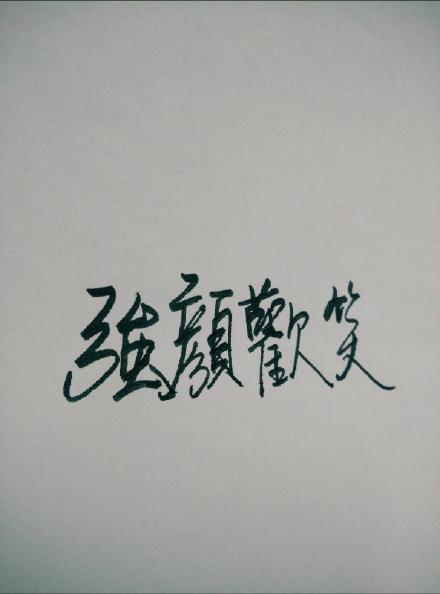 強顏歡笑